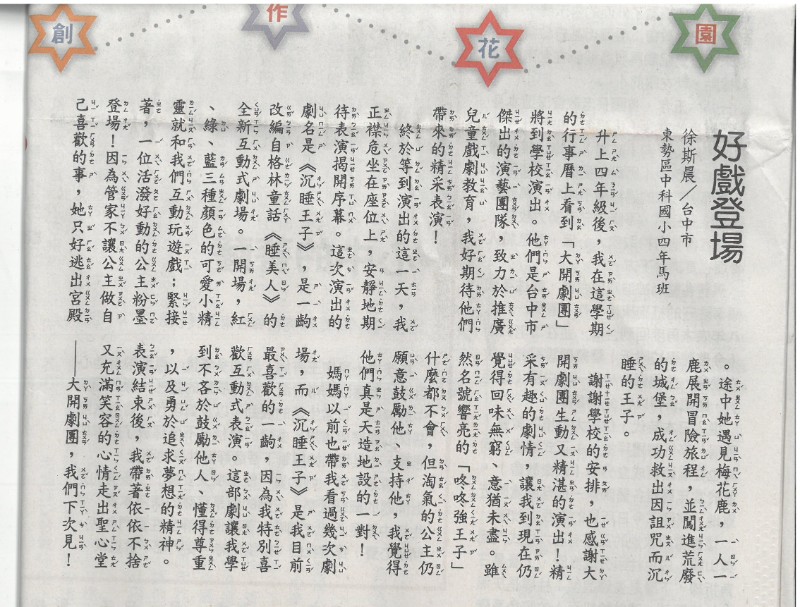 創作花園
好戲登場
徐斯晨／台中市
東勢區中科國小四年馬班
升上四年級後，我在這學期
的行事曆上看到「大開劇團」
將到學校演出。他們是台中市
傑出的演藝團隊，致力於推廣
兒童戲劇教育，我好期待他們
帶來的精采表演！
終於等到演出的這一天，我
正襟危坐在座位上，安靜地期
待表演揭開序幕。這次演出的
劇名是《沉睡王子》，是一齣
改編自格林童話《睡美人》的
全新互動式劇場。一開場，紅
、綠、藍三種顏色的可愛小精
靈就和我們互動玩遊戲；緊接
著，一位活潑好動的公主粉墨
登場！因為管家不讓公主做自
己喜歡的事，她只好逃出宮殿
。途中她遇見梅花鹿，一人一
鹿展開冒險旅程，並闖進荒廢
的城堡，成功救出因詛咒而沉
睡的王子。
謝謝學校的安排，也感謝大
開劇團生動又精湛的演出！精
采有趣的劇情，讓我到現在仍
覺得回味無窮、意猶未盡。雖
然名號響亮的「咚咚強王子」
什麼都不會，但淘氣的公主仍
願意鼓勵他、支持他，我覺得
他們真是天造地設的一對！
媽媽以前也帶我看過幾次劇
場，而《沉睡王子》是我目前
最喜歡的一齣，因為我特別喜
歡互動式表演。這部劇讓我學
到不吝於鼓勵他人、懂得尊重
，以及勇於追求夢想的精神。
表演結束後，我帶著依依不捨
又充滿笑容的心情走出聖心堂
——大開劇團，我們下次見！